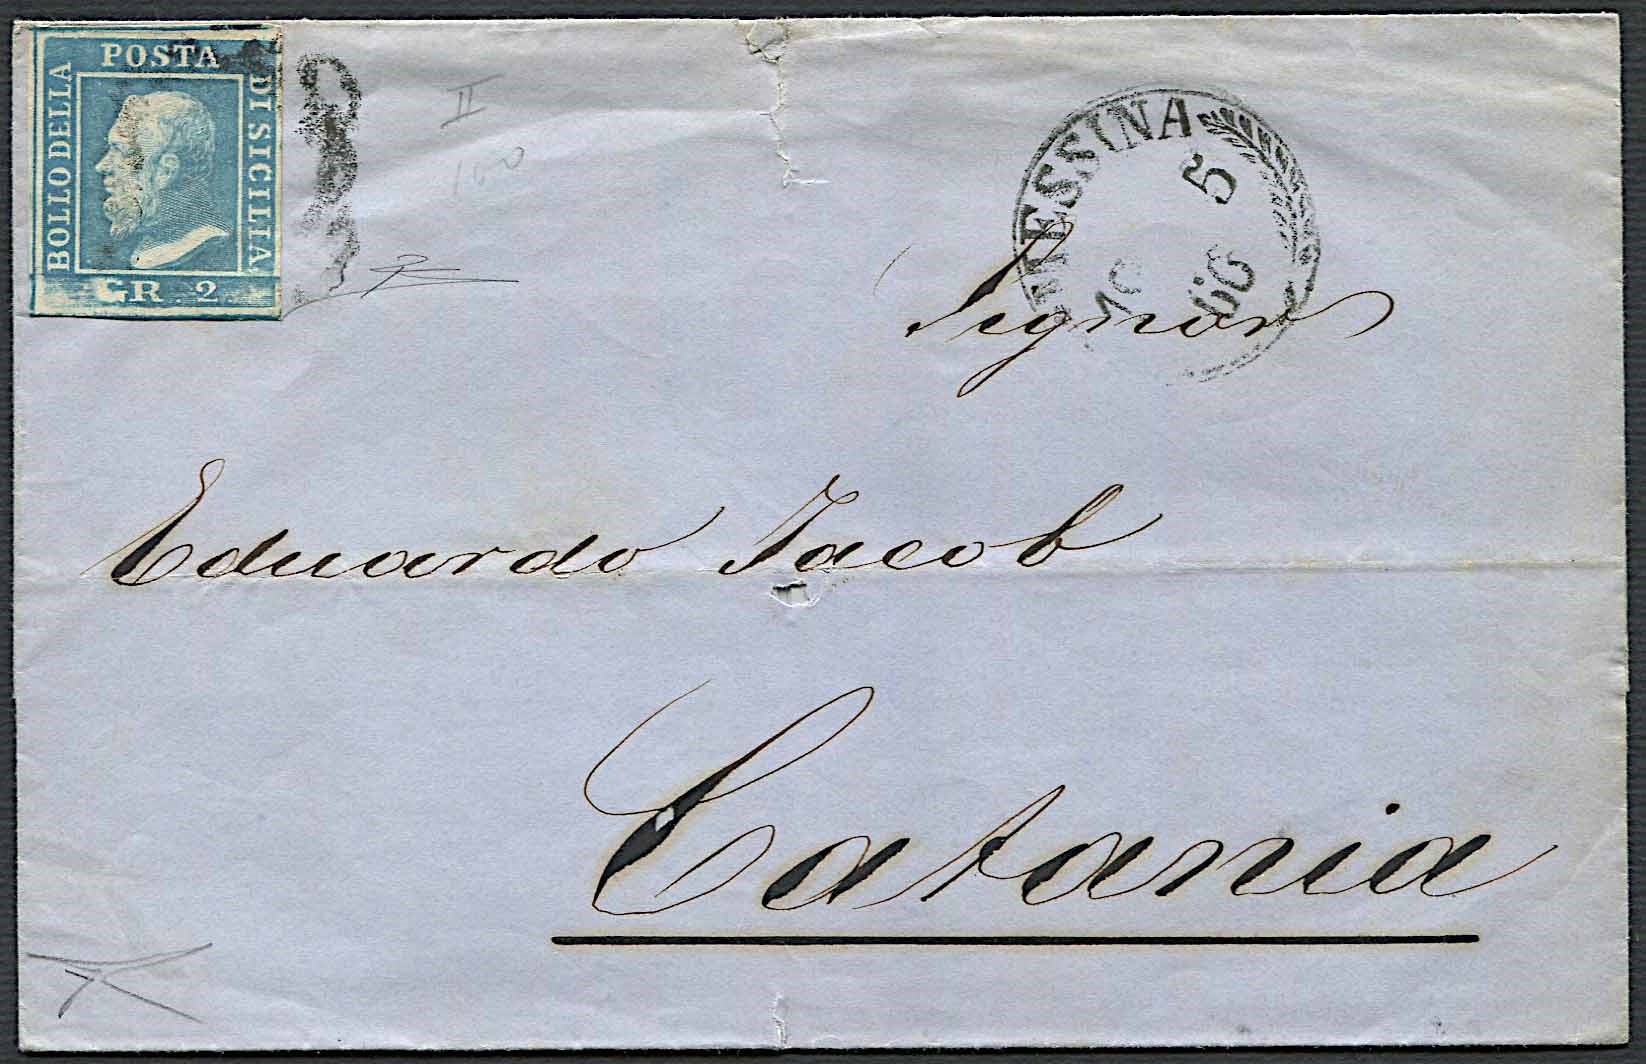 POSTA
BOLLO DELLA
DI SICILIA
GR. 2
II
100
MESSINA
5
Signor
Eduardo Jacob
Catania